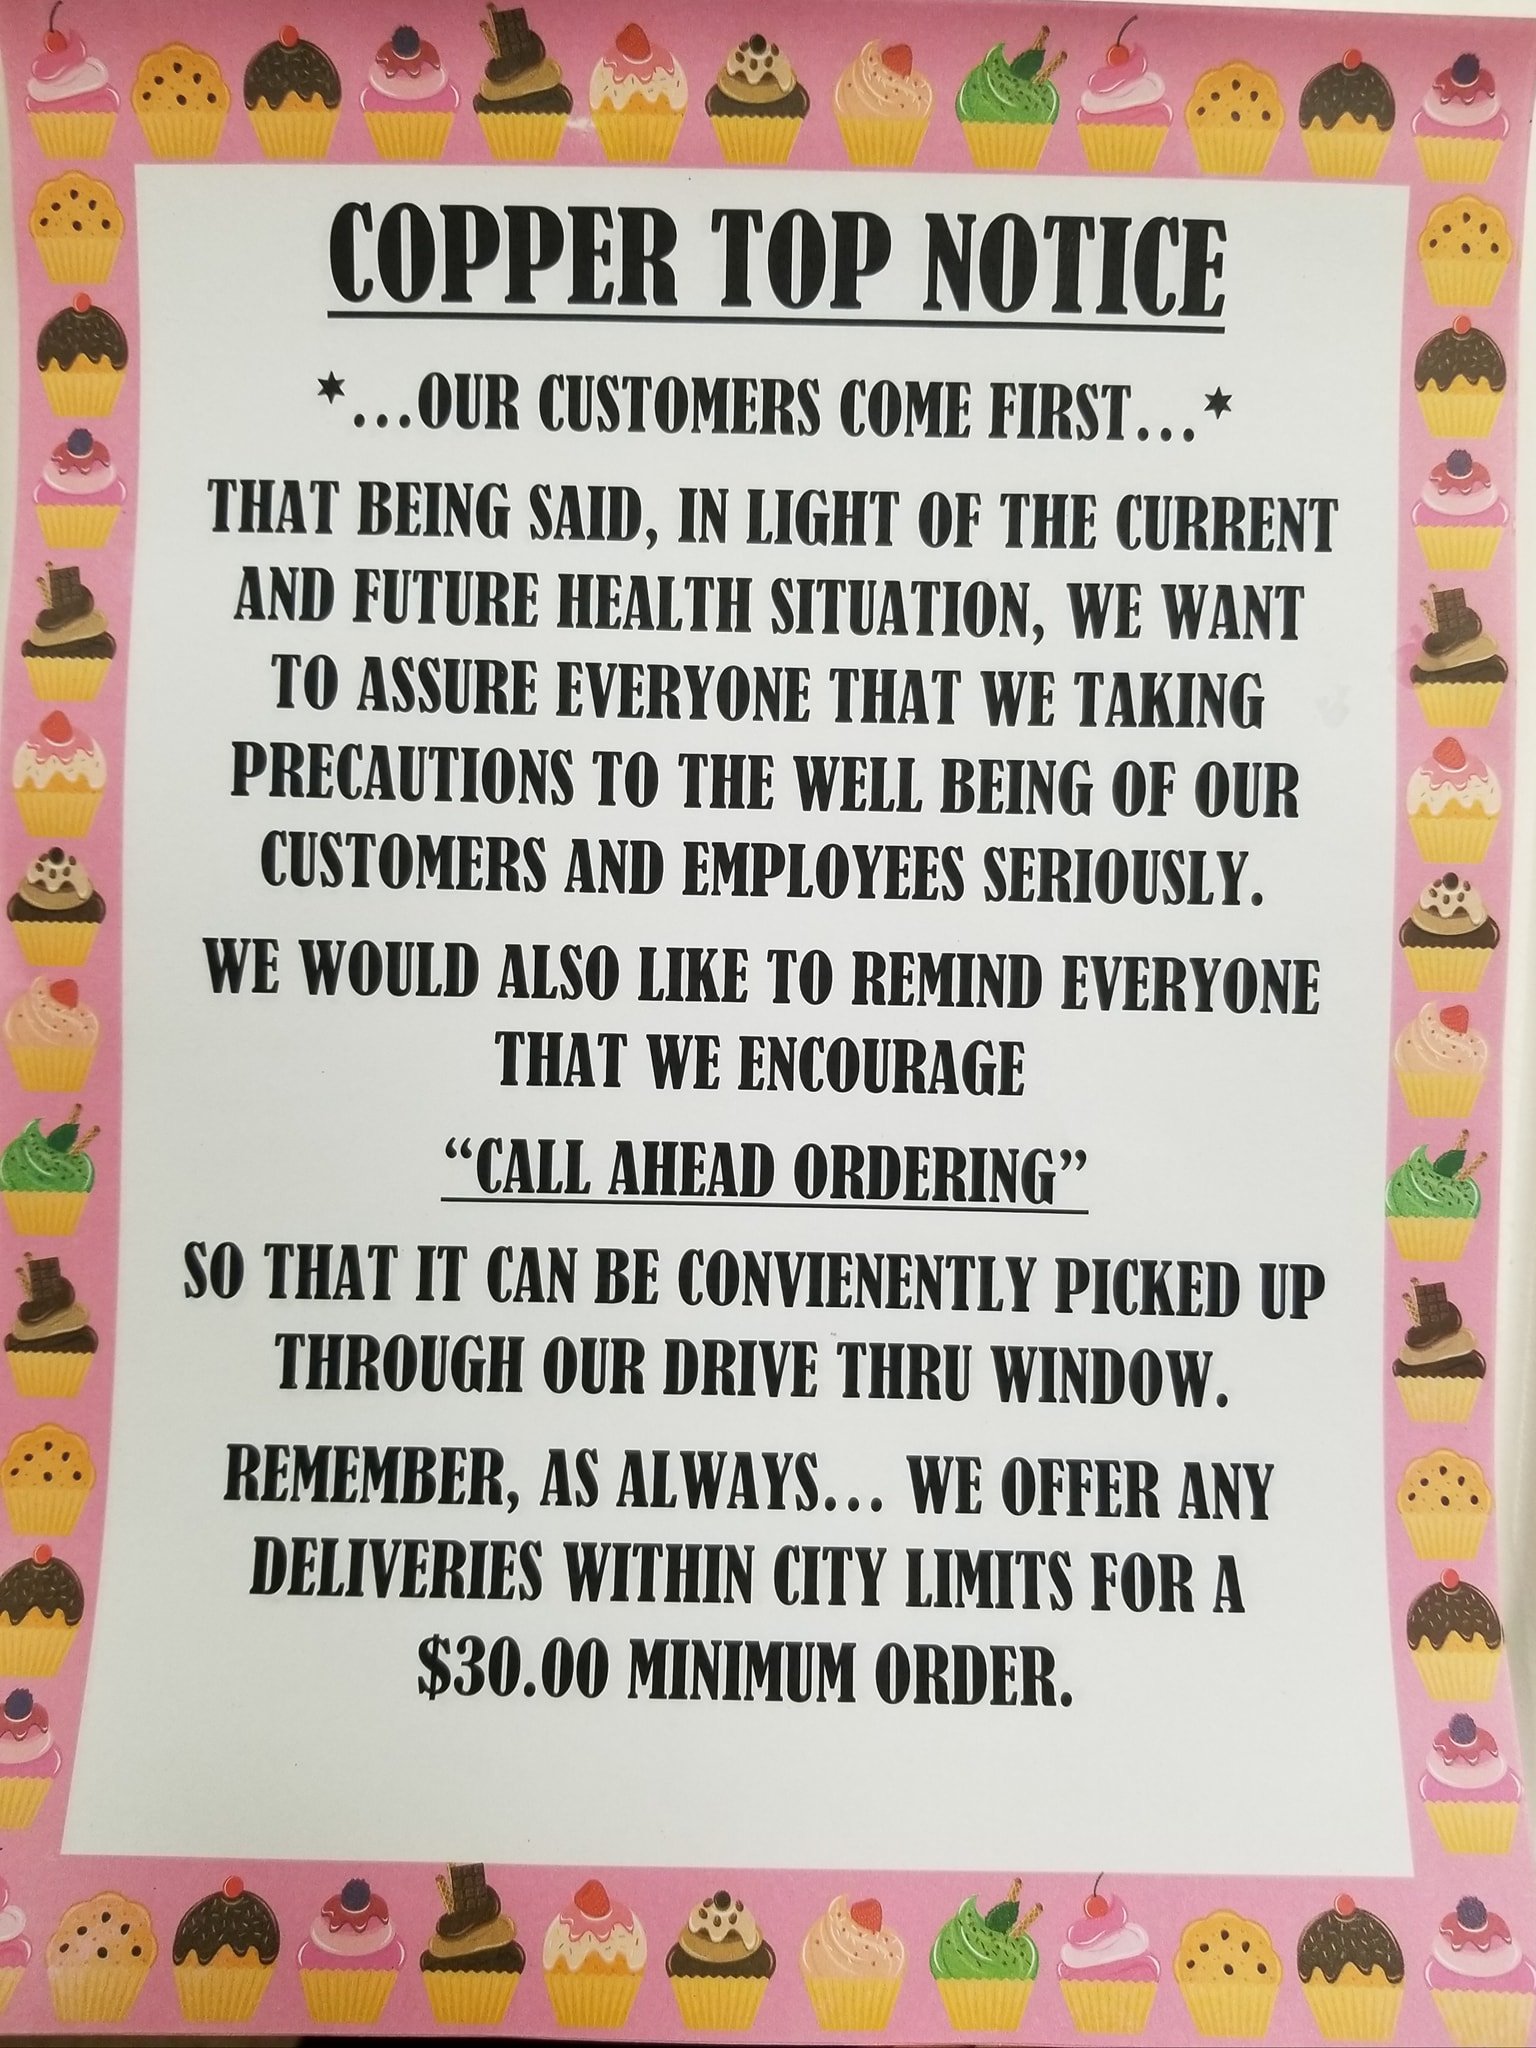 COPPER TOP NOTICE
*...OUR CUSTOMERS COME FIRST...*
THAT BEING SAID, IN LIGHT OF THE CURRENT
AND FUTURE HEALTH SITUATION, WE WANT
TO ASSURE EVERYONE THAT WE TAKING
PRECAUTIONS TO THE WELL BEING OF OUR
CUSTOMERS AND EMPLOYEES SERIOUSLY.
WE WOULD ALSO LIKE TO REMIND EVERYONE
THAT WE ENCOURAGE
“CALL AHEAD ORDERING”
SO THAT IT CAN BE CONVIENENTLY PICKED UP
THROUGH OUR DRIVE THRU WINDOW.
REMEMBER, AS ALWAYS... WE OFFER ANY
DELIVERIES WITHIN CITY LIMITS FOR A
$30.00 MINIMUM ORDER.